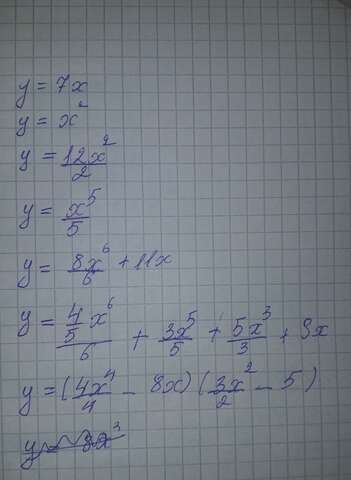 y = 7x
y = x²
y = 12x²/2
y = x⁵/5
y = 8x⁶/6 + 11x
y = (4/5 x⁶)/6 + 3x⁵/5 + 5x³/3 + 9x
y = (4x⁴/4 - 8x)(3x²/2 - 5)